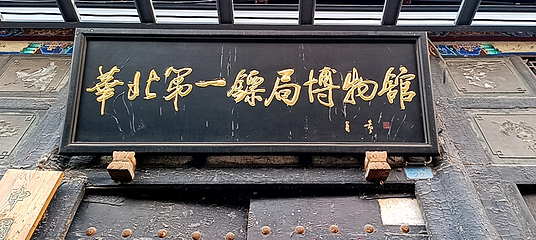 華北第一鏢局博物館